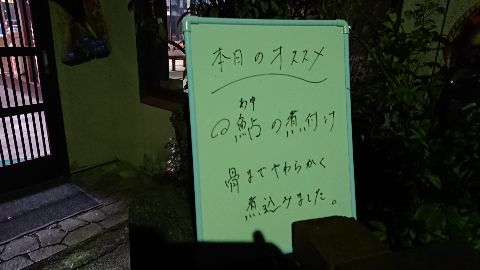 本日のオススメ
あゆ
鮎の煮付け
骨までやわらかく
煮込みました。